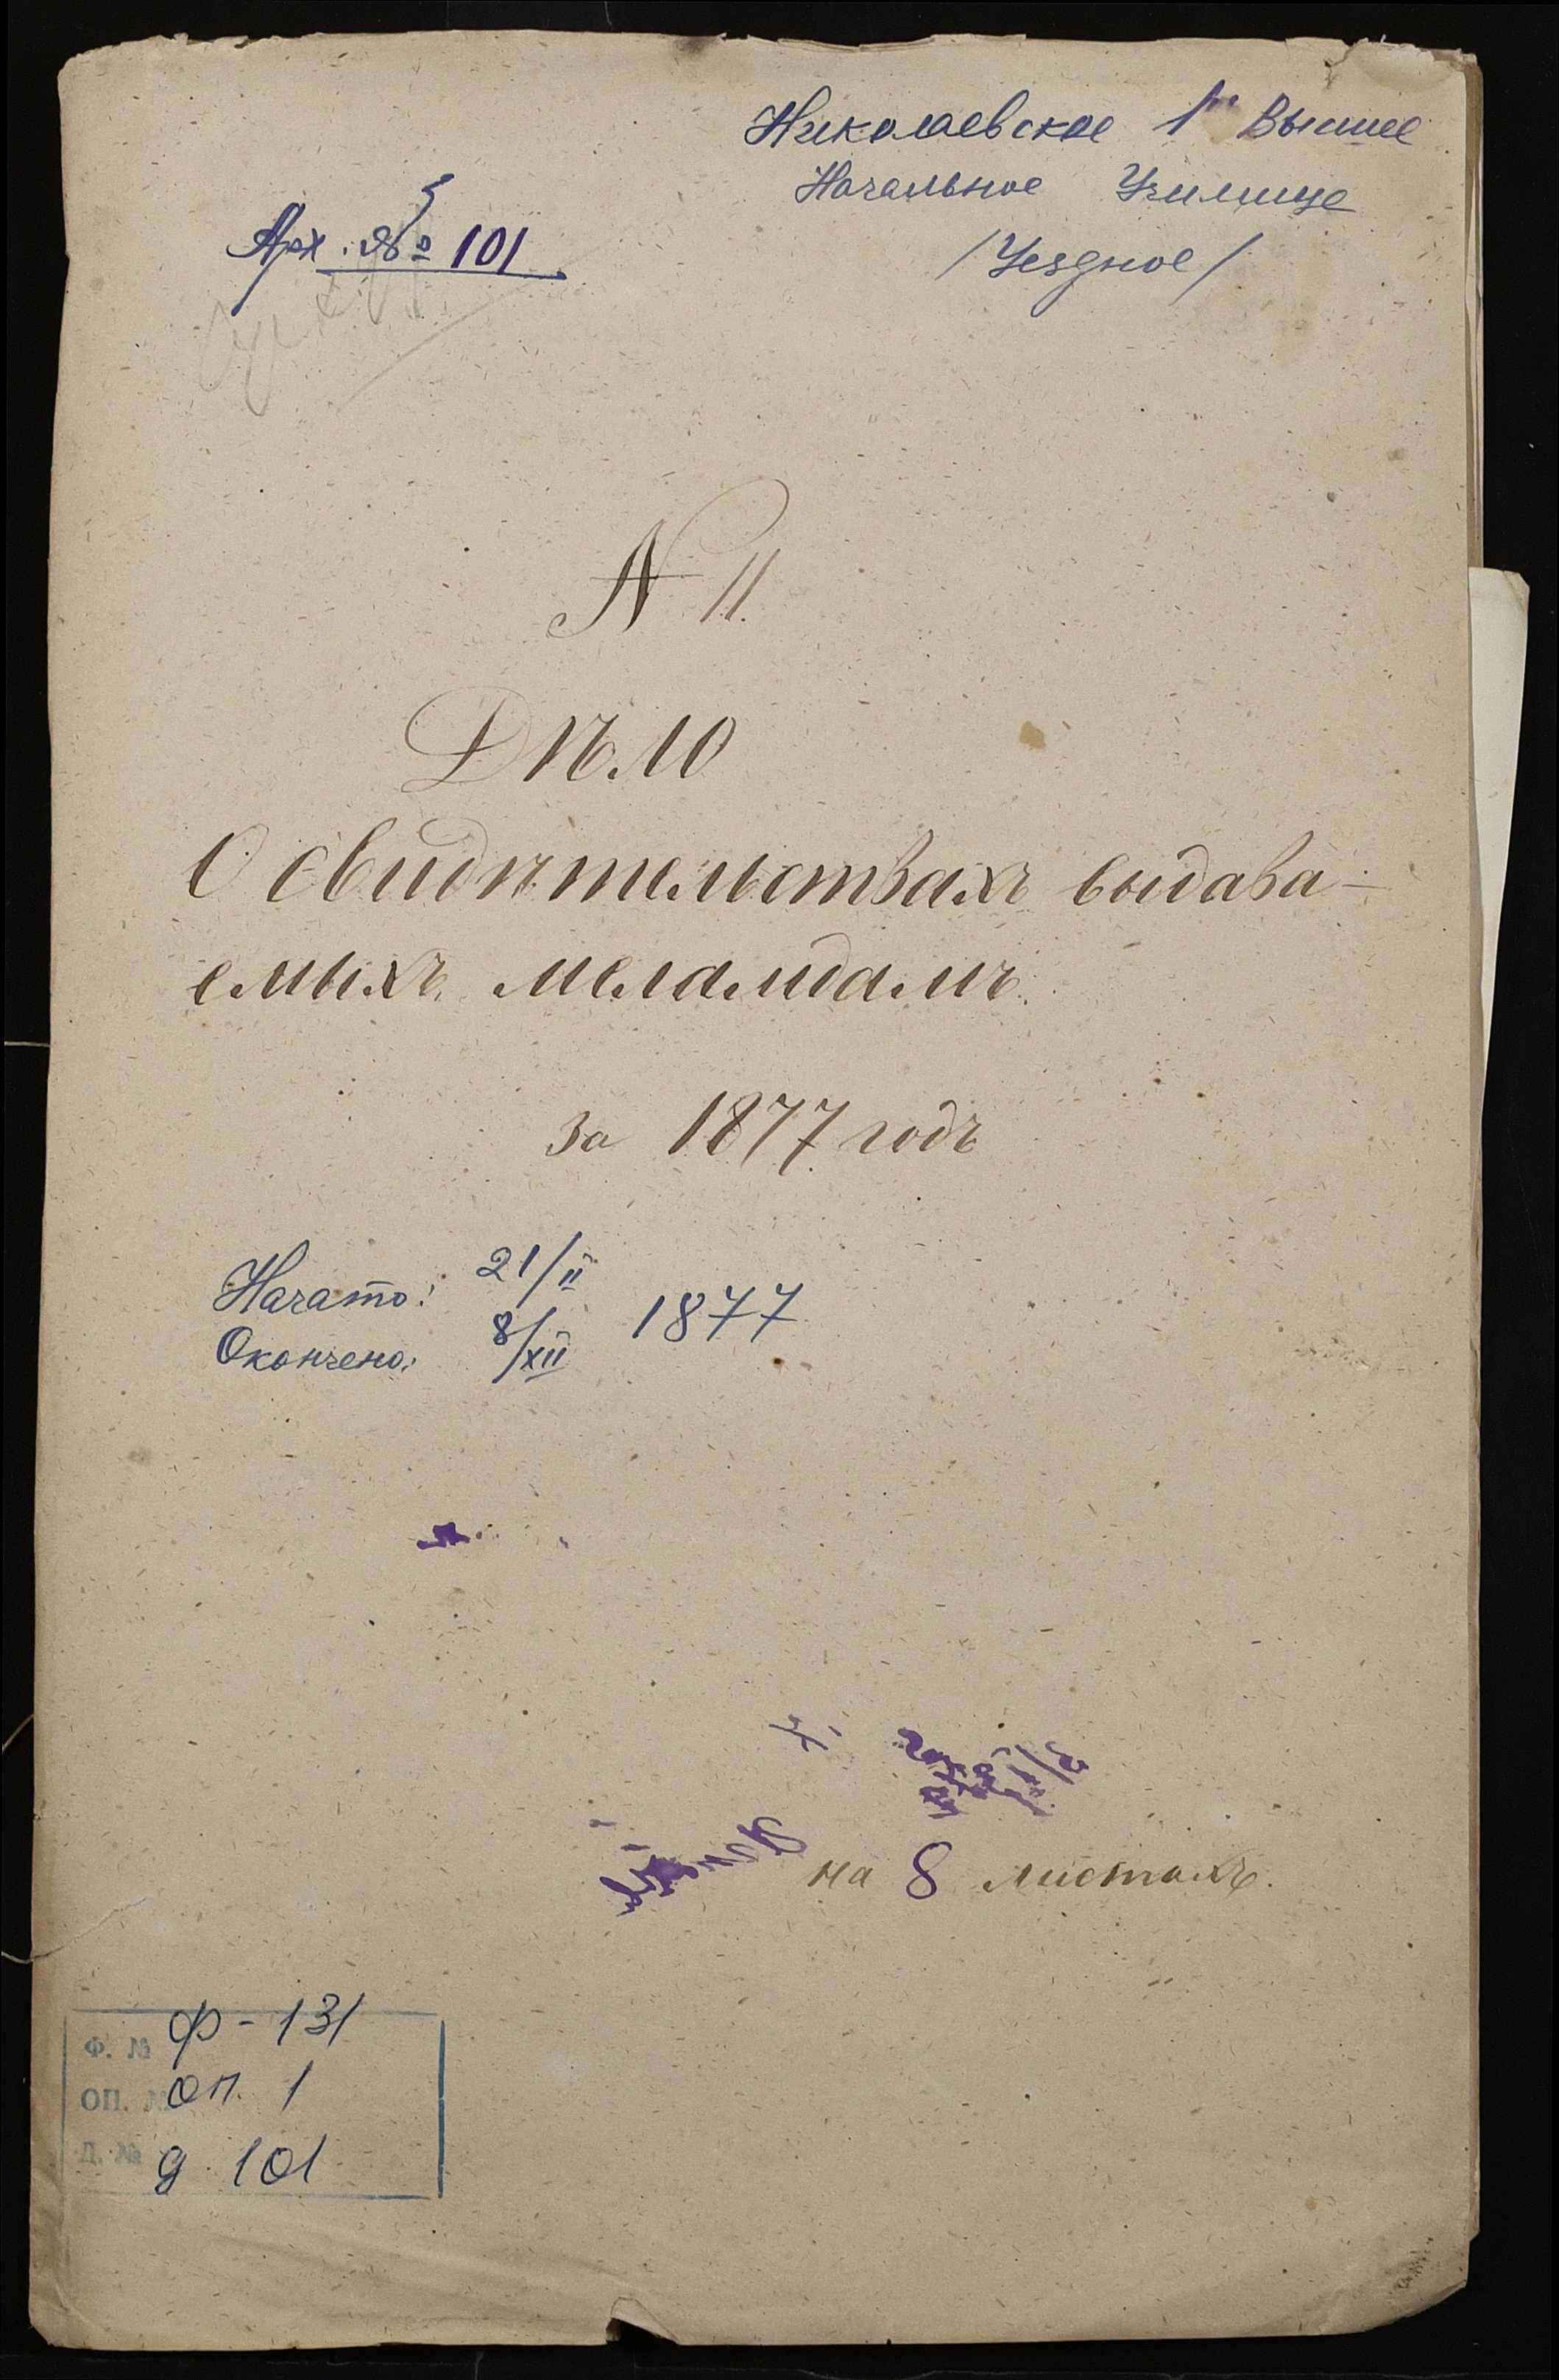 Николаевское 1ᵒᵉ Высшее
Начальное Училище
/Уездное/
Арх. № 101
N 11.
Дѣло
О свидѣтельствахъ выдава-
емыхъ меламдамъ.
за 1877 годъ
Начато: 21/II
1877
Окончено: 8/XII
на 8 листахъ.
Ф. № Ф-131
ОП. № оп. 1
Д. № д. 101